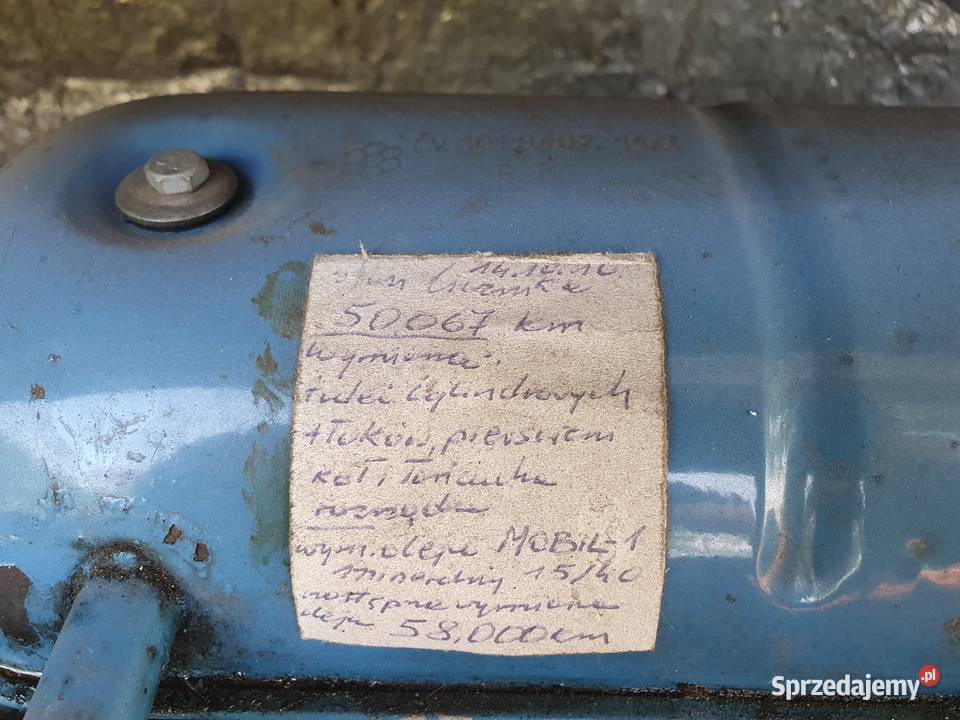 14.10.10.
Stan licznika
50067 km
Wymiana:
tulei cylindrowych
tłoków, pierścieni
kół i łańcucha
rozrządu
wym. oleju MOBIL-1
mineralny 15/40
następna wymiana
oleju 58.000 km
Sprzedajemy.pl